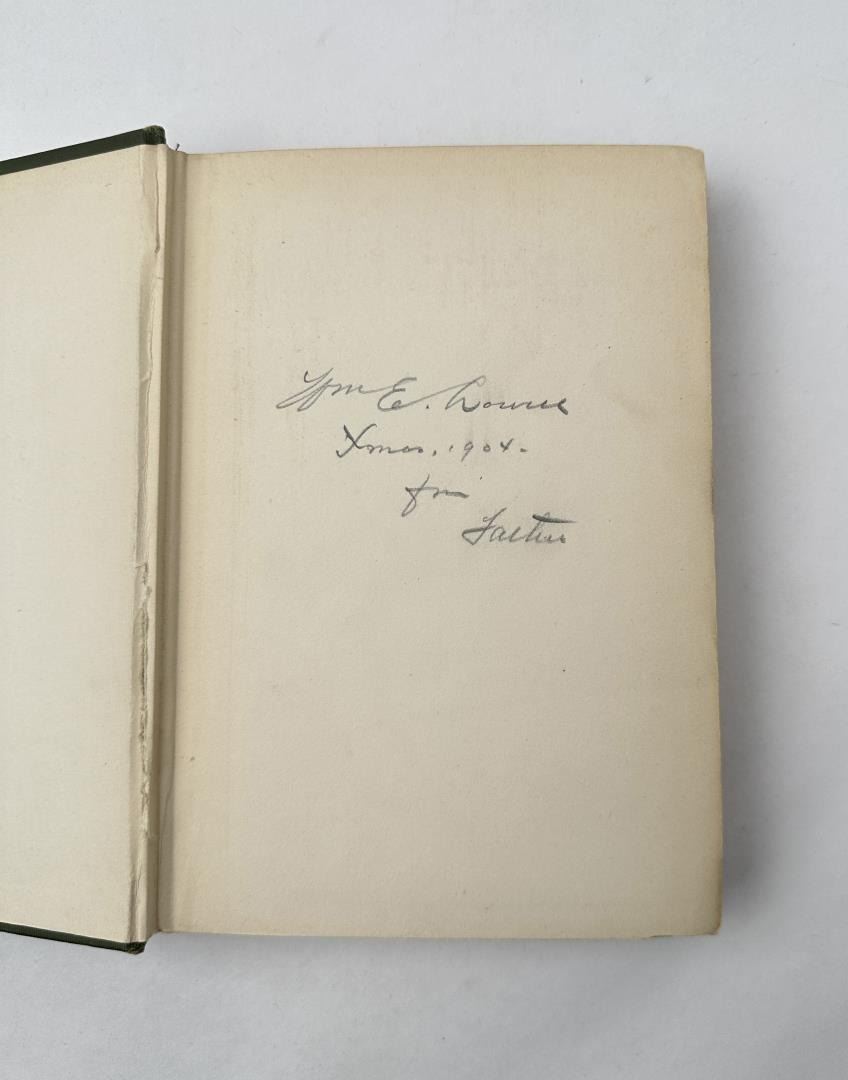 Wm E.
Xmas. 1904.
fm
Father